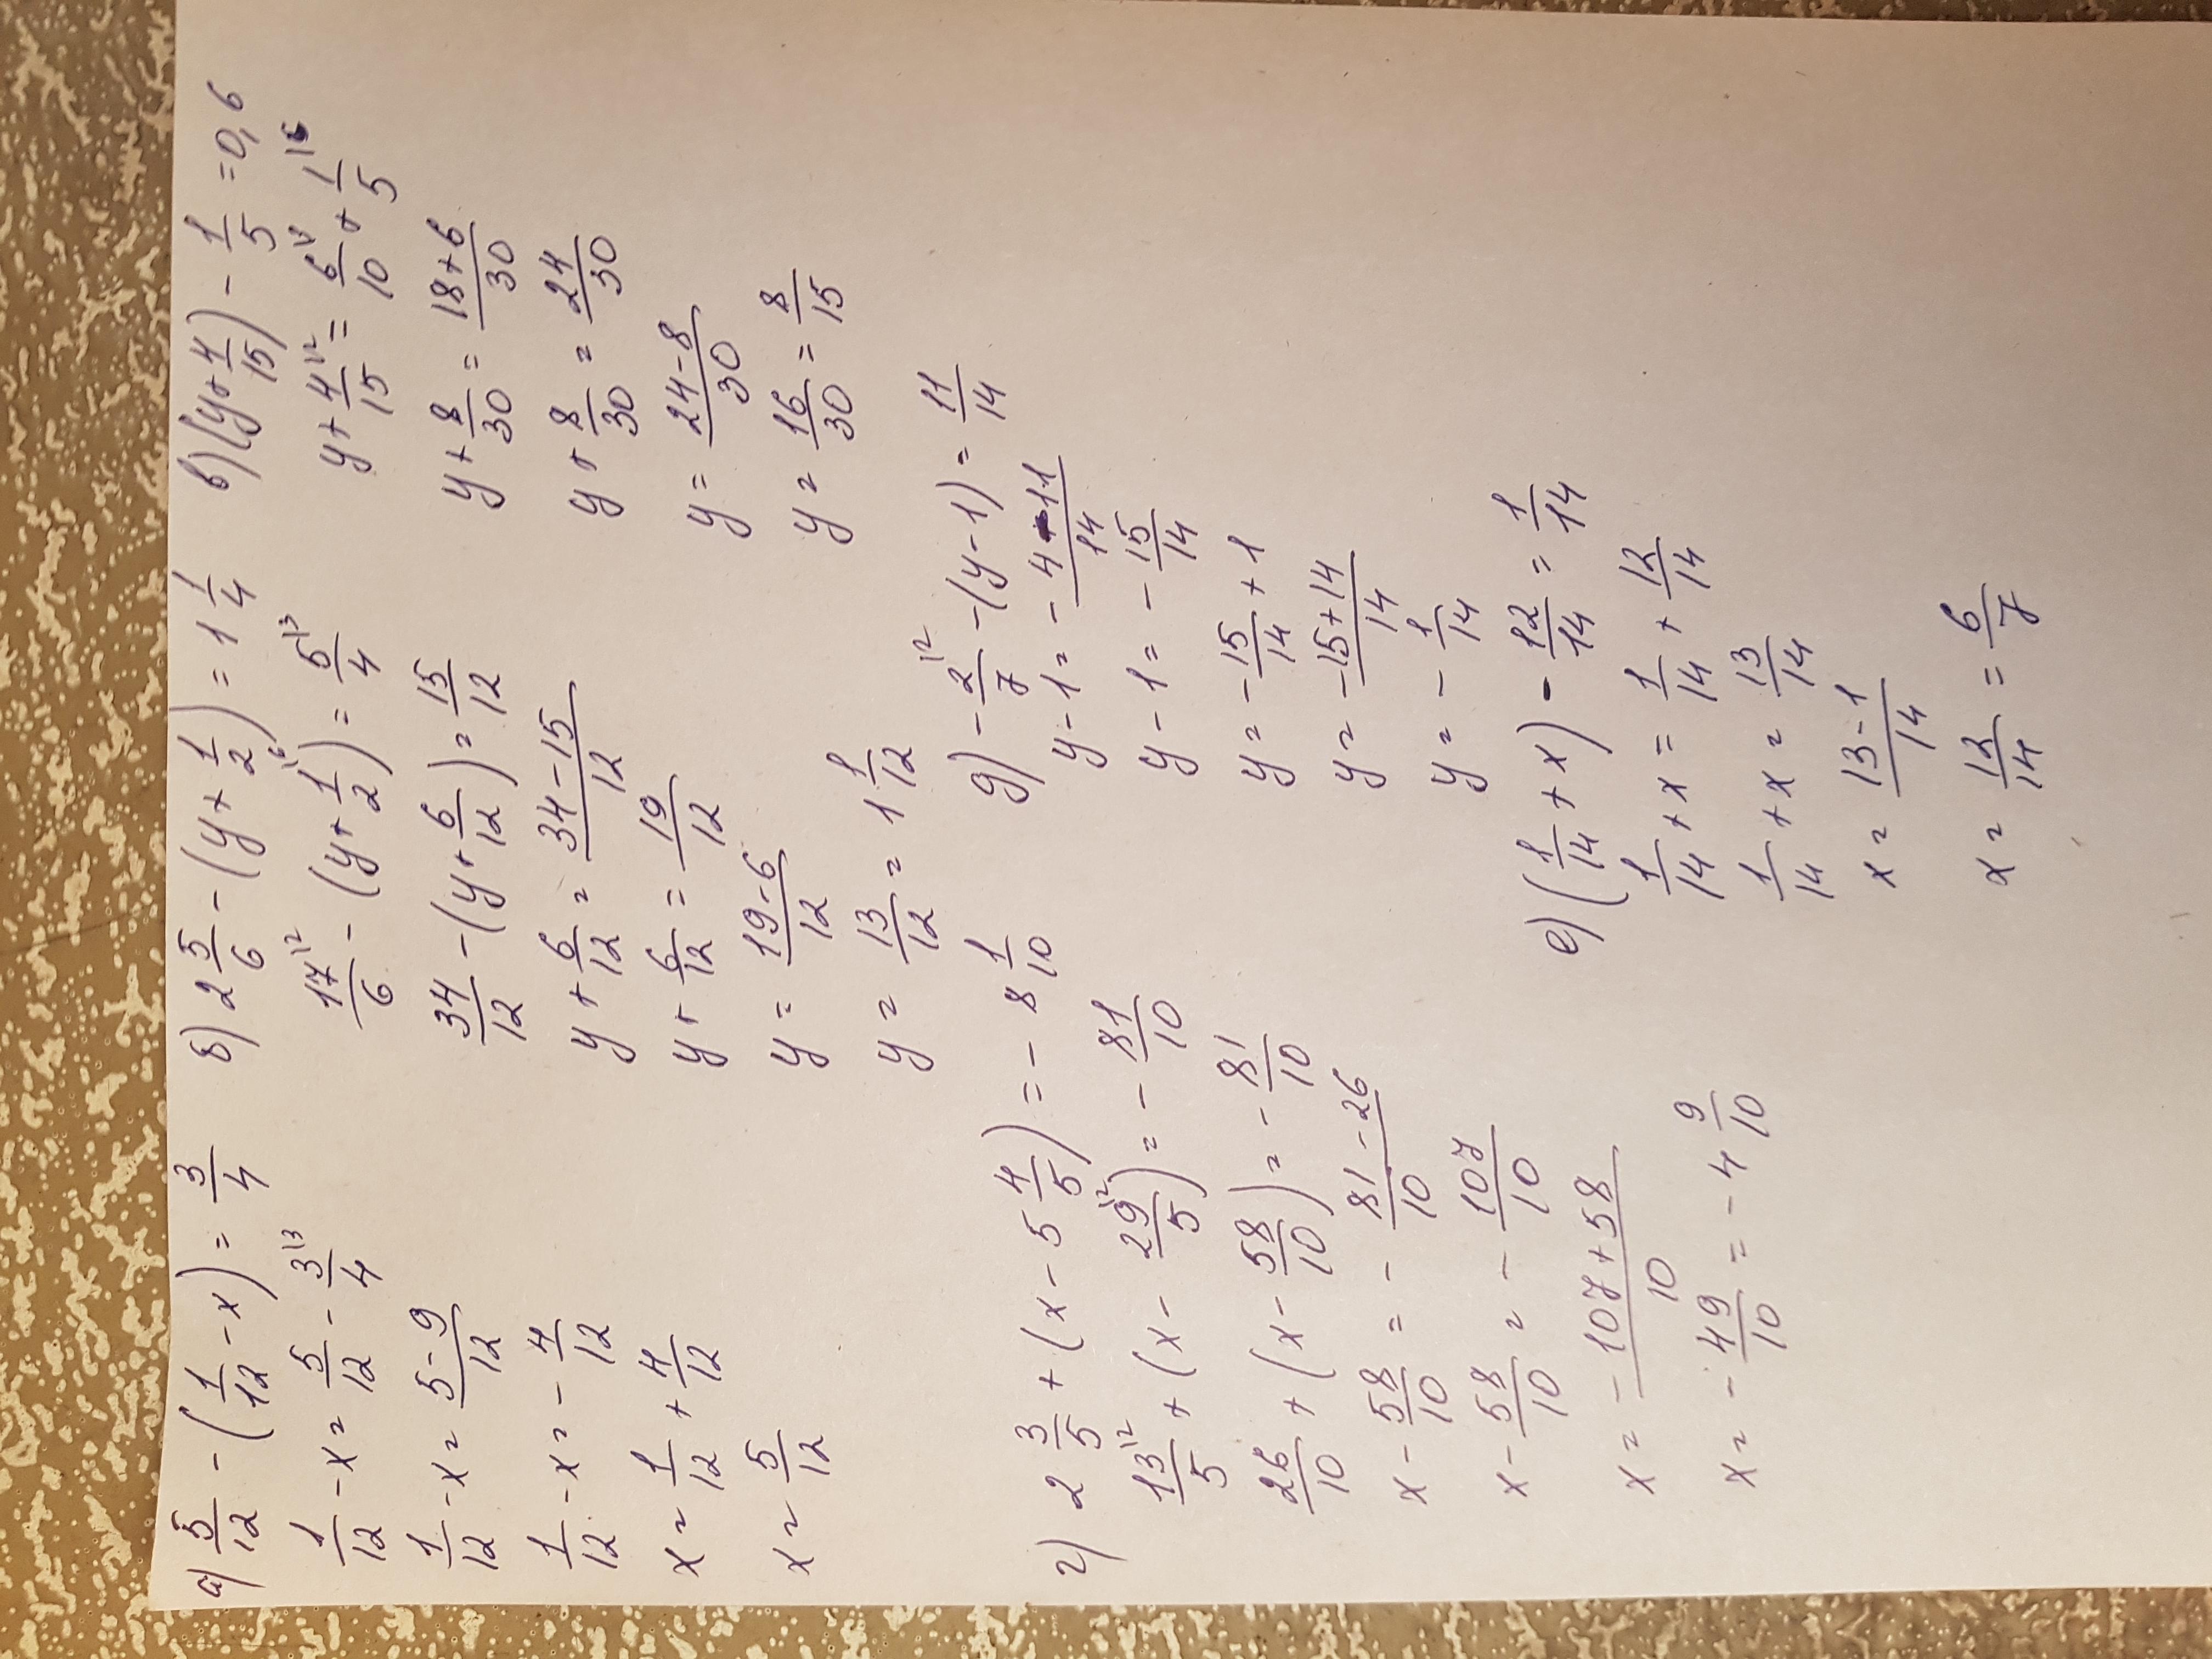 а) 5/12 - (1/12 - x) = 3/4
1/12 - x = 5/12 - 3/4 \3
1/12 - x = (5-9)/12
1/12 - x = - 4/12
x = 1/12 + 4/12
x = 5/12
б) 2 5/6 - (y + 1/2) = 1 1/4
17/6 \2 - (y + 1/2 \6) = 5/4 \3
34/12 - (y + 6/12) = 15/12
y + 6/12 = (34-15)/12
y + 6/12 = 19/12
y = (19-6)/12
y = 13/12 = 1 1/12
в) (y + 4/15) - 1/5 = 0,6
y + 4/15 \2 = 6/10 \3 + 1/5 \6
y + 8/30 = (18+6)/30
y + 8/30 = 24/30
y = (24-8)/30
y = 16/30 = 8/15
г) 2 3/5 + (x - 5 4/5) = - 8 1/10
13/5 \2 + (x - 29/5 \2) = - 81/10
26/10 + (x - 58/10) = - 81/10
x - 58/10 = - 81/10 - 26
x - 58/10 = - 107/10
x = (- 107 + 58)/10
x = - 49/10 = - 4 9/10
д) - 2/7 \2 - (y - 1) = 11/14
y - 1 = (- 4 - 11)/14
y - 1 = - 15/14
y = - 15/14 + 1
y = (-15+14)/14
y = - 1/14
е) (1/14 + x) - 12/14 = 1/14
1/14 + x = 1/14 + 12/14
1/14 + x = 13/14
x = (13-1)/14
x = 12/14 = 6/7